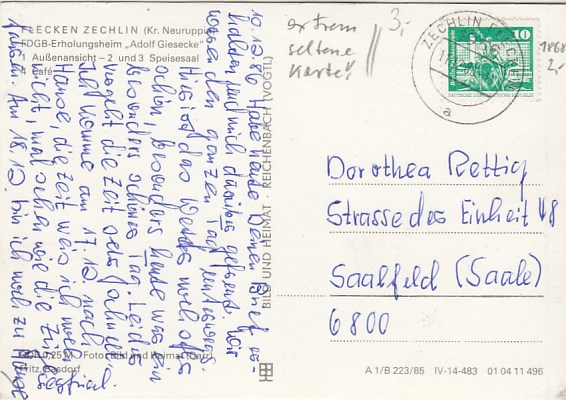 FLECKEN ZECHLIN (Kr. Neuruppin)
FDGB-Erholungsheim „Adolf Giesecke“
1 Außenansicht – 2 und 3 Speisesaal
4 Café
extrem
seltene
Karte!
3,-
ZECHLIN
a
10
1868
2,-
10.12.86 Habe heute Deinen Brief er-
halten und mich darüber gefreut. Wir
waren den ganzen Tag unterwegs.
Hier ist das Wetter noch
schön, besonders heute war ein
besonders schöner Tag. Leider
vergeht die Zeit sehr schnell.
Ich komme am 17.12. nach
Hause, die Zeit weis ich noch
nicht, mal sehen wie die Züge
fahren. Am 18.12. bin ich noch zu Hause
BILD UND HEIMAT · REICHENBACH (VOGTL)
Dorothea Rettig
Strasse des Einheit 48
Saalfeld (Saale)
6800
0,25 M Foto: Bild und Heimat (Darr)
Fritz,
A 1/B 223/85 IV-14-483 01 04 11 496